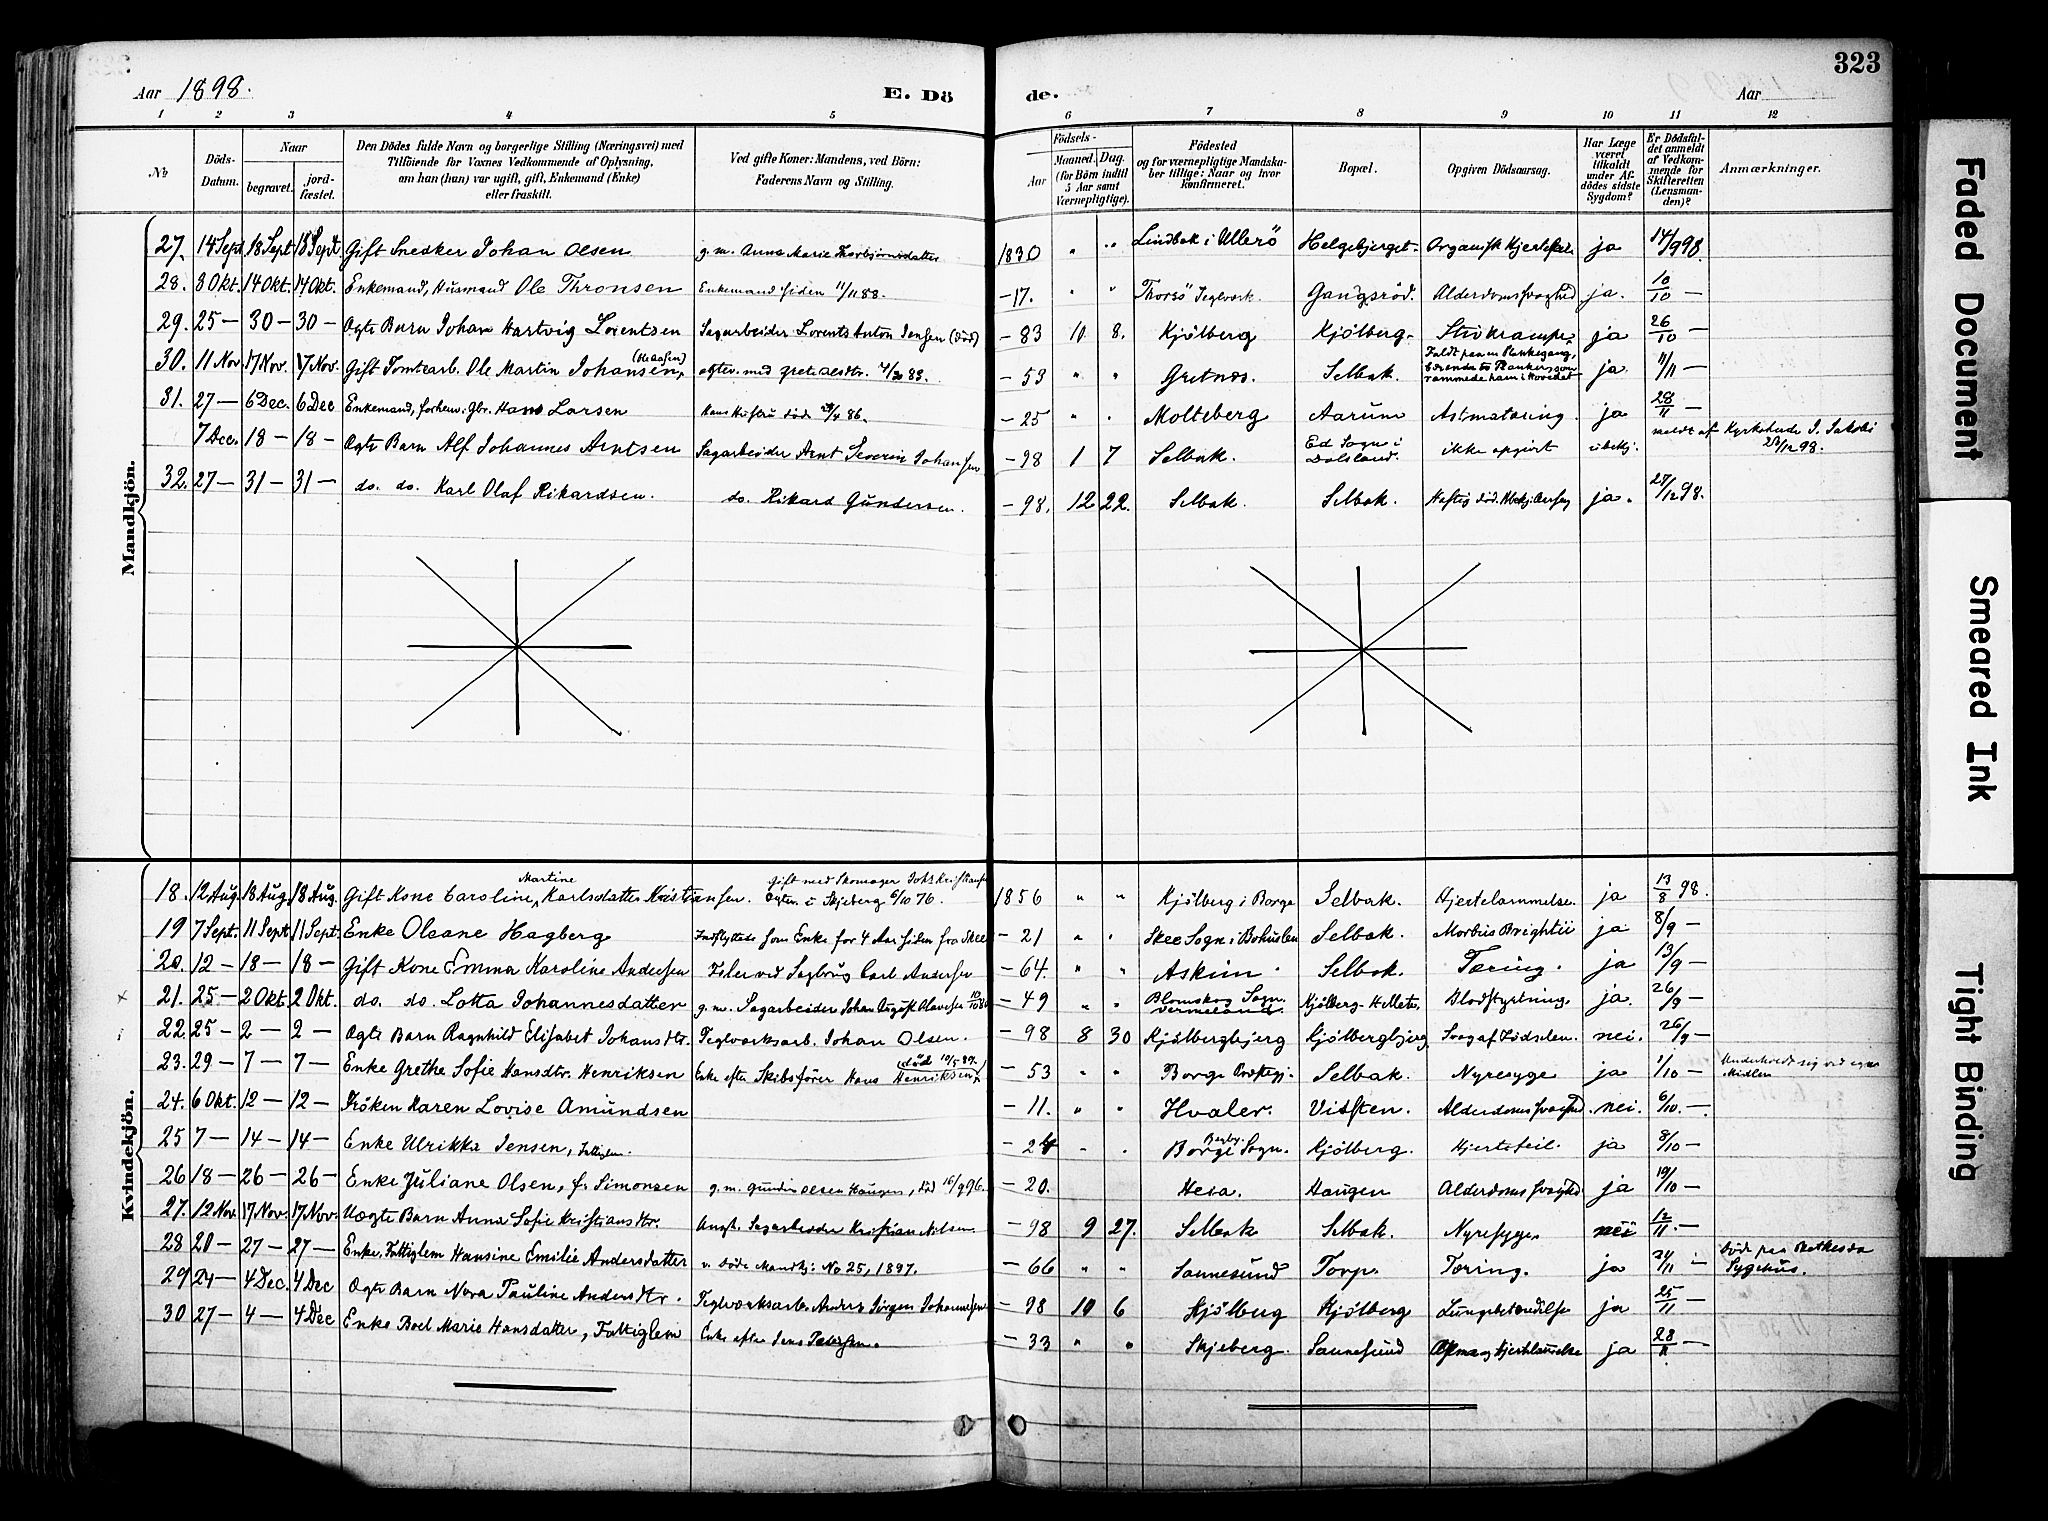 323
Aar 1898.
E. Dö
de.
Aar
1 2 3 4 5 6 7 8 9 10 11 12
No
Döds-Datum.
Naar
begravet.
jordfæstet.
Den Dödes fulde Navn og borgerlige Stilling (Næringsvei) med
Tilföiende for Voxnes Vedkommende af Oplysning,
om han (hun) var ugift, gift, Enkemand (Enke)
eller fraskilt.
Ved gifte Koner: Mandens, ved Börn:
Faderens Navn og Stilling.
Födsels-
Aar
Maaned. Dag.
(for Börn indtil
5 Aar samt
Værnepligtige).
Födested
og for værnepligtige Mandska-
ber tillige: Naar og hvor
konfirmeret.
Bopæl.
Opgiven Dödsaarsag.
Har Læge
været
tilkaldt
under Af-
dödes sidste
Sygdom?
Er Dödsfal-
det anmeldt
af Vedkom-
mende for
Skifteretten
(Lensman-
den)?
Anmærkninger.
Mandkjön.
27. 14 Sept 18 Sept 18 Sept. Gift Snedker Johan Olsen g. m. Anna Marie Thorbjørnsdatter 1830 " " Lindbak i Ullerö Helgebjerget. Organisk Hjertefeil ja 14/9 98.
28. 3 Okt. 14 Okt. 14 Okt. Enkemand, Husmand Ole Thronsen Enkemand siden 11/11 88. —17. " " Thorsö Teglværk. Gangsröd. Alderdomssvaghed ja. 10/10 —
29. 25 — 30 — 30 — Ægte Barn Johan Hartvig Lorentsen Sagarbeider Lorents Anton Jensen (död) —83 10 8. Kjölberg Kjölberg. Stivkrampe, ja 26/10 —
30. 11 Nov 17 Nov. 17 Nov. Gift Tomtearb. Ole Martin Johansen, ægtev. med Grete Olsdtr. —53 " " Gretnes. Selbak. Faldt paa en Plankegang, bærende to Planker, som rammede ham i Hovedet ja 11/11 —
31. 27 — 6 Dec. 6 Dec Enkemand, forhenv. Gbr. Hans Larsen Hans Hustru döde 86. —25 " " Molteberg Aarum Astmatæring. ja 28/11 —
7 Dec. 18 — 18 — Ægte Barn Alf Johannes Arntsen Sagarbeider Arnt Severin Johansen —98 1 7 Selbak. Ed Sogn i Dalsland. ikke opgivet ubekj. meldt af Kyrkoherde S. Sakobi 28/12 98.
32. 27 — 31 — 31 — do. do. Karl Olaf Rikardsen. do. Rikard Gundersen. —98. 12 22. Selbak. Selbak. Heftig död. ja. 28/12 98.
Kvindekjön.
18. 12 Aug. 18 Aug. 18 Aug. Gift Kone Caroline Martine Karlsdatter Kristiansen. Gift med Skomager Joh. Kristiansen Ægtev. i Skjeberg 6/10 76. 1856 " " Kjölberg i Borge Selbak. Hjertelammelse. ja 13/8 98.
19 7 Sept. 11 Sept 11 Sept. Enke Oleane Hagberg Indflyttede som Enke for 4 Aar siden fra Skee —21 " " Skee Sogn i Bohuslen Selbak. Morbus Brightii ja 8/9 —
20. 12 — 18 — 18 — Gift Kone Emma Karoline Andersen Filer ved Sagbrug Carl Andersen —64. " " Askim. Selbak. Tæring. ja 13/9 —
21. 25 — 2 Okt. 2 Okt. do. do. Lotta Johannesdatter g. m. Sagarbeider Johan August Olavesen —49 " " Blomskog Sogn. Vermeland. Kjölberg-Hellete, Blodstyrtning. ja. 26/9 —
22. 25 — 2 — 2 — Ægte Barn Ragnhild Elisabet Johansdtr. Teglværksarb. Johan Olsen. —98 8 30 Kjölbergbjerg Kjölbergbjerg Svag af Fødselen. nei. 26/9 —
23. 29 — 7 — 7 — Enke Grethe Sofie Hansdtr. Henriksen Enke efter Skibsförer Hans Henriksen, (död 10/5 87.) —53 " " Borge Præstegj. Selbak. Nyresyge ja 1/10 — Underholdt sig ved egne Midler
24. 6 Okt. 12 — 12 — Fröken Karen Lovise Amundsen —11. " " Hvaler. Vidsten. Alderdomssvaghed. nei. 6/10. —
25 7 — 14 — 14 — Enke Ulrikka Jensen, Fattiglem. —24 " " Borge Sogn. Kjölberg. Hjertefeil. ja 8/10 —
26 18 — 26 — 26 — Enke Juliane Olsen, f. Simonsen g. m. Gunder Olsen Haugen, död 16/9 96. —20. Heia. Haugen Alderdomssvaghed ja 19/10 —
27. 12 Nov. 17 Nov. 17 Nov. Uægte Barn Anna Sofie Kristiansdtr. Angt. Sagarbeider Kristian Nilsen. —98 9 27. Selbak Selbak. Nyresyge. nei 12/11. —
28 20 — 27 — 27 — Enke, Fattiglem Hansine Emilie Andersdatter v. Döde Mandkj: No 25, 1897. —66 " " Sannesund Torp. Tæring. ja 24/11 — Död paa Sygehus.
29 24 — 4 Dec. 4 Dec Ægte Barn Nora Pauline Andersdtr. Teglværksarb. Anders Jörgen Johannesen —98 10 6 Kjölberg Kjölberg Lungebetændelse ja 25/11 —
30 27 — 4 — 4 Dec Enke Boel Marie Hansdatter, Fattiglem Enke efter Jens Petersen. —33 " " Skjeberg. Sannesund Astma og Hjertelammelse ja 28/11 —
Faded Document
Smeared Ink
Tight Binding